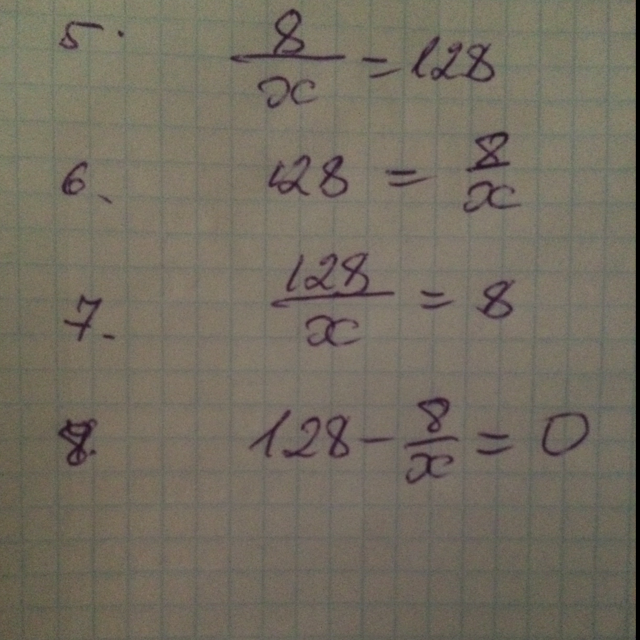 5. 8/x = 128
6. 128 = 8/x
7. 128/x = 8
8. 128 - 8/x = 0